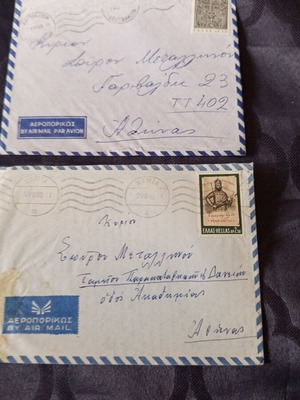 Κύριον
Σπύρον Μεταλληνόν
Γαριβάλδη 23
ΤΤ 402
Αθήνας
ΑΕΡΟΠΟΡΙΚΩΣ
BY AIR MAIL PAR AVION
Κύριον
Σπύρον Μεταλληνόν
Ταμεῖον Παρακαταθηκῶν & Δανείων
ὁδός Ακαδημίας
Αθήνας
ΕΛΛΑΣ-HELLAS
ΑΕΡΟΠΟΡΙΚΩΣ
BY AIR MAIL